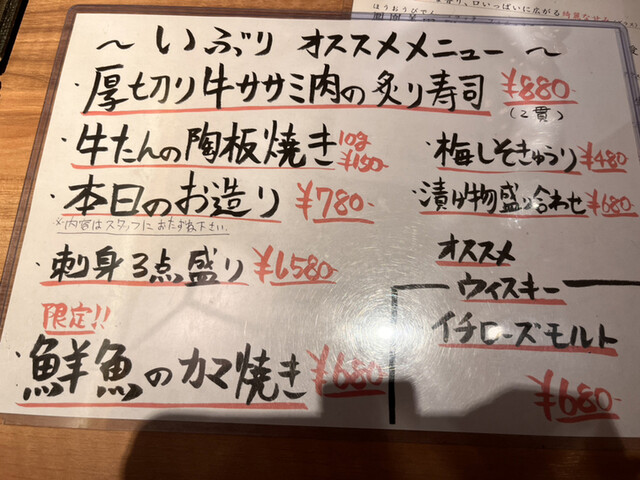 ~ いぶり オススメメニュー ~
・厚切り牛ササミ肉の炙り寿司 ¥880
(2貫)
・牛たんの陶板焼き 10g ¥150
・本日のお造り ¥780
※内容はスタッフにおたずね下さい。
・刺身3点盛り ¥1,580
限定!!
・鮮魚のカマ焼き ¥680
・梅しそきゅうり ¥480
・漬け物盛り合わせ ¥680
オススメ
ウィスキー
イチローズモルト
¥680